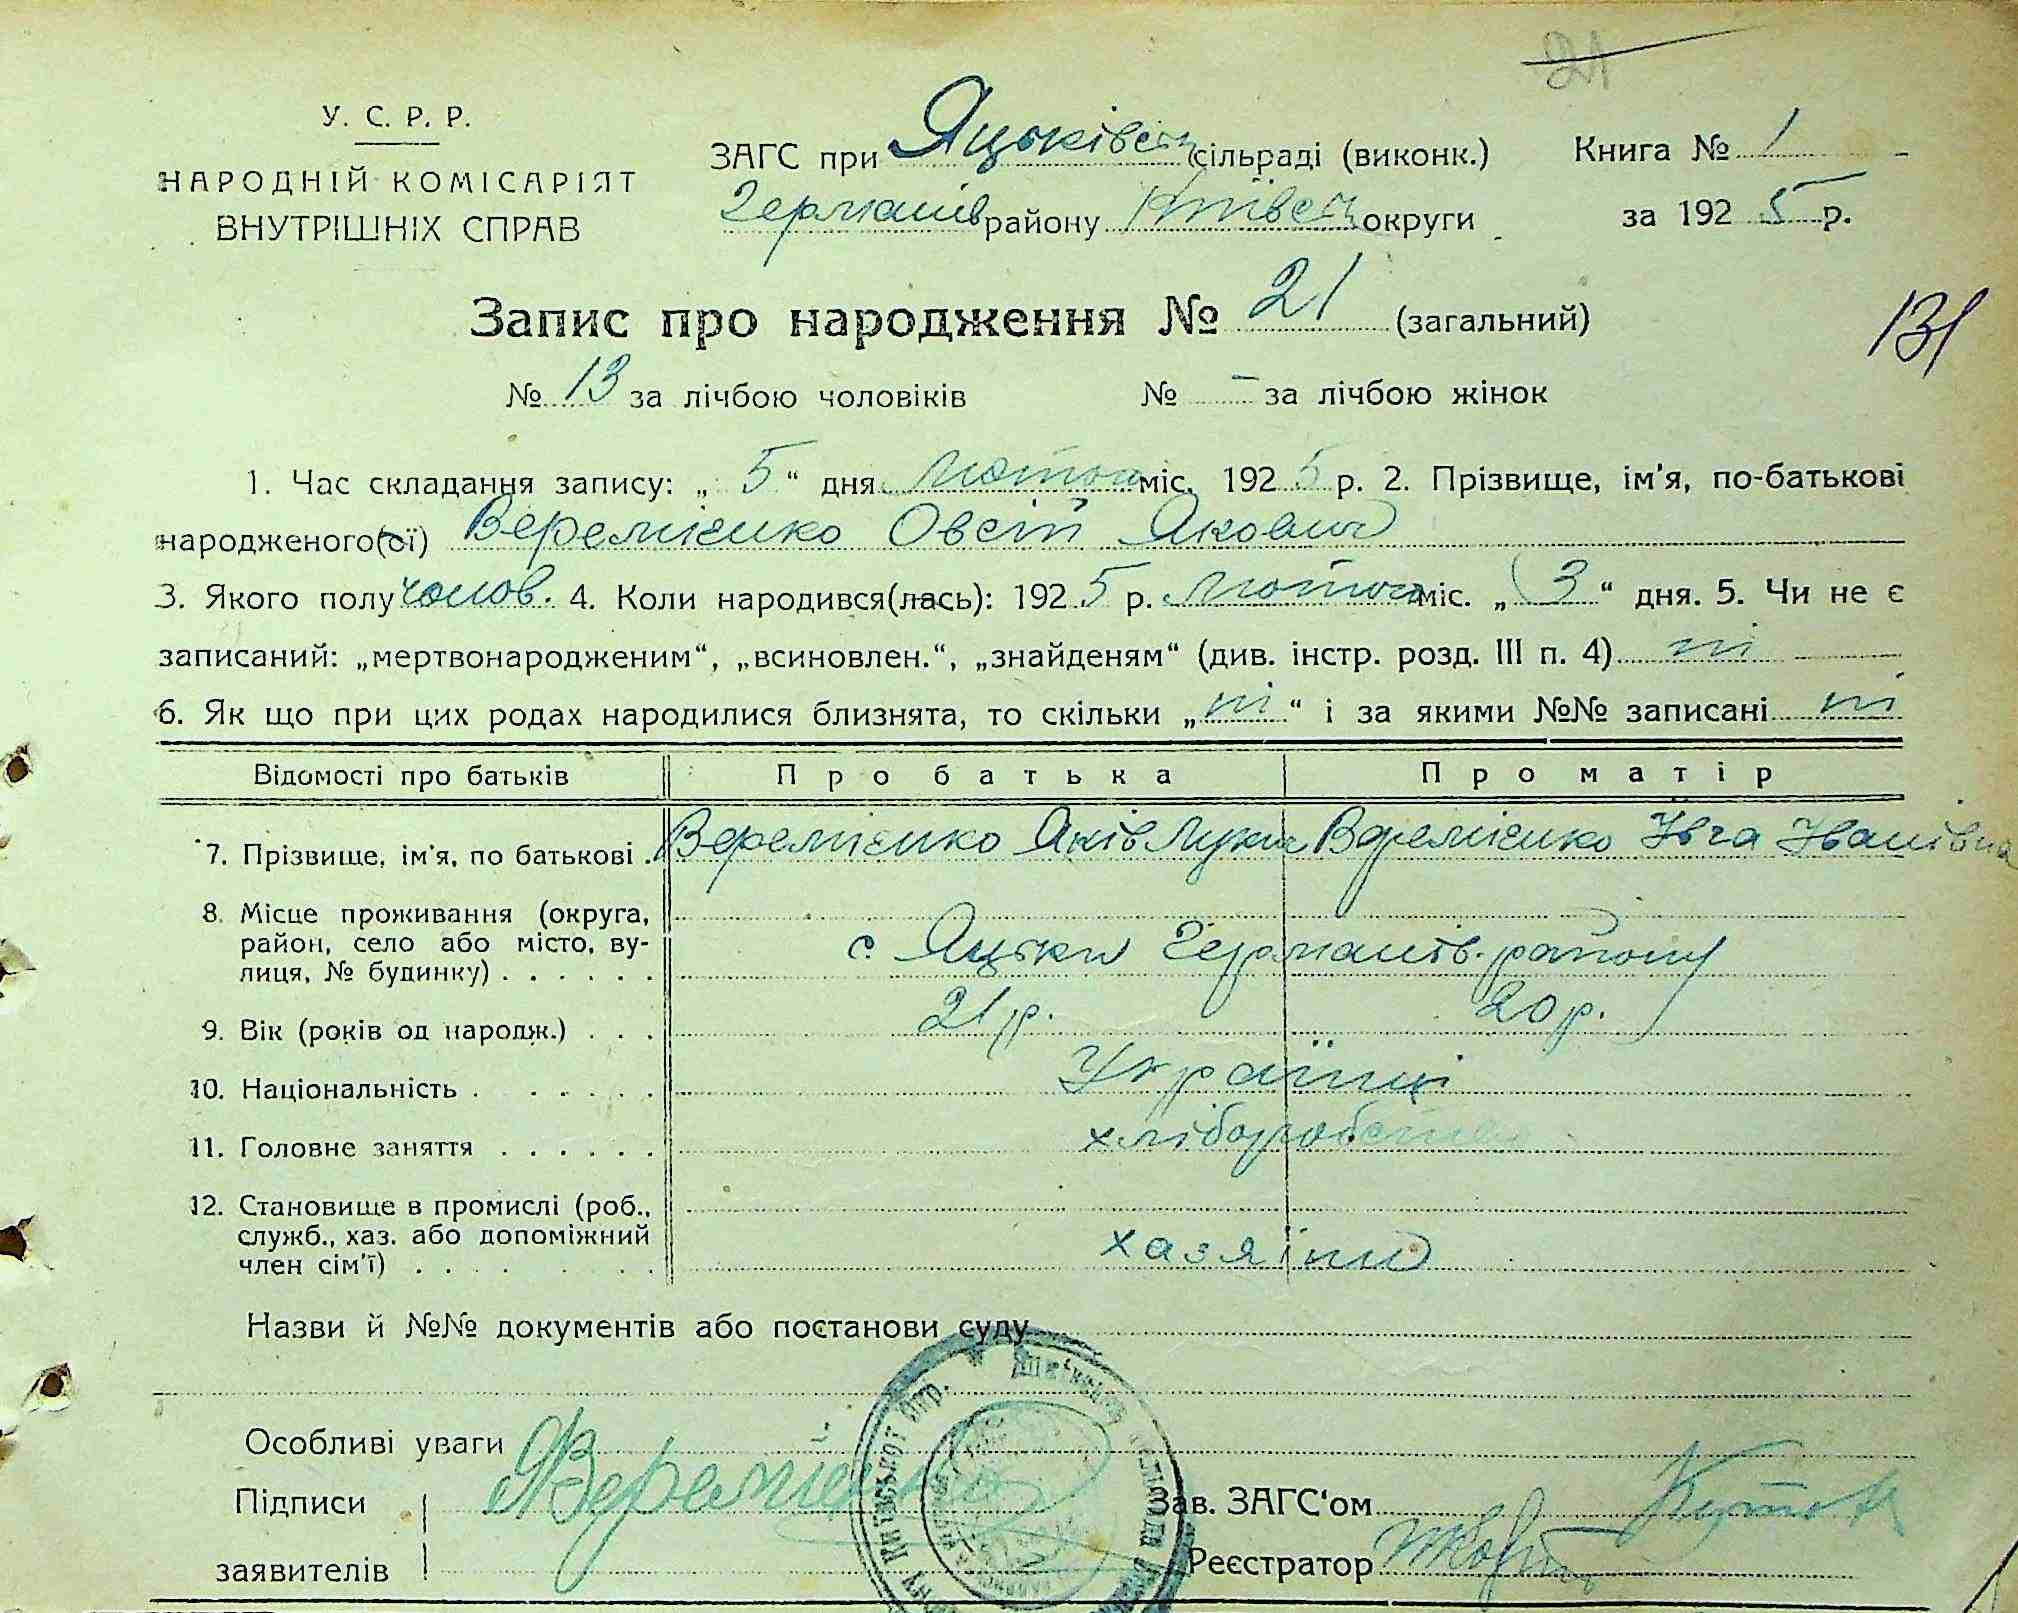 21
У. С. Р. Р.
НАРОДНІЙ КОМІСАРІЯТ
ВНУТРІШНІХ СПРАВ
ЗАГС при Яцьківськ сільраді (виконк.) Книга № 1
Германів району Київськ округи за 1925 р.
Запис про народження № 21 (загальний)
131
№ 13 за лічбою чоловіків № – за лічбою жінок
1. Час складання запису: „5“ дня лютого міс. 1925 р. 2. Прізвище, ім'я, по-батькові
народженого(ої) Веремієнко Овсій Якович
3. Якого полу чолов. 4. Коли народився(лась): 1925 р. лютого міс. „3“ дня. 5. Чи не є
записаний: „мертвонародженим“, „всиновлен.“, „знайденям“ (див. інстр. розд. III п. 4) ні
6. Як що при цих родах народилися близнята, то скільки „ні“ і за якими №№ записані ні
Відомості про батьків Про батька Про матір
7. Прізвище, ім'я, по батькові . Веремієнко Яків Лукич Веремієнко Ївга Іванівна
8. Місце проживання (округа,
район, село або місто, ву-
лиця, № будинку) . . . . . . с. Яцьки Германів. району
9. Вік (років од народж.) . . . 21 р. 20 р.
10. Національність . . . . . . Українці
11. Головне заняття . . . . . . хліборобство
12. Становище в промислі (роб.,
служб., хаз. або допоміжний
член сім'ї) . . . . . . хазяїни
Назви й №№ документів або постанови суду
Особливі уваги
Підписи Я Веремієнко Зав. ЗАГС‘ом
заявителів Реєстратор
Київської Окр.